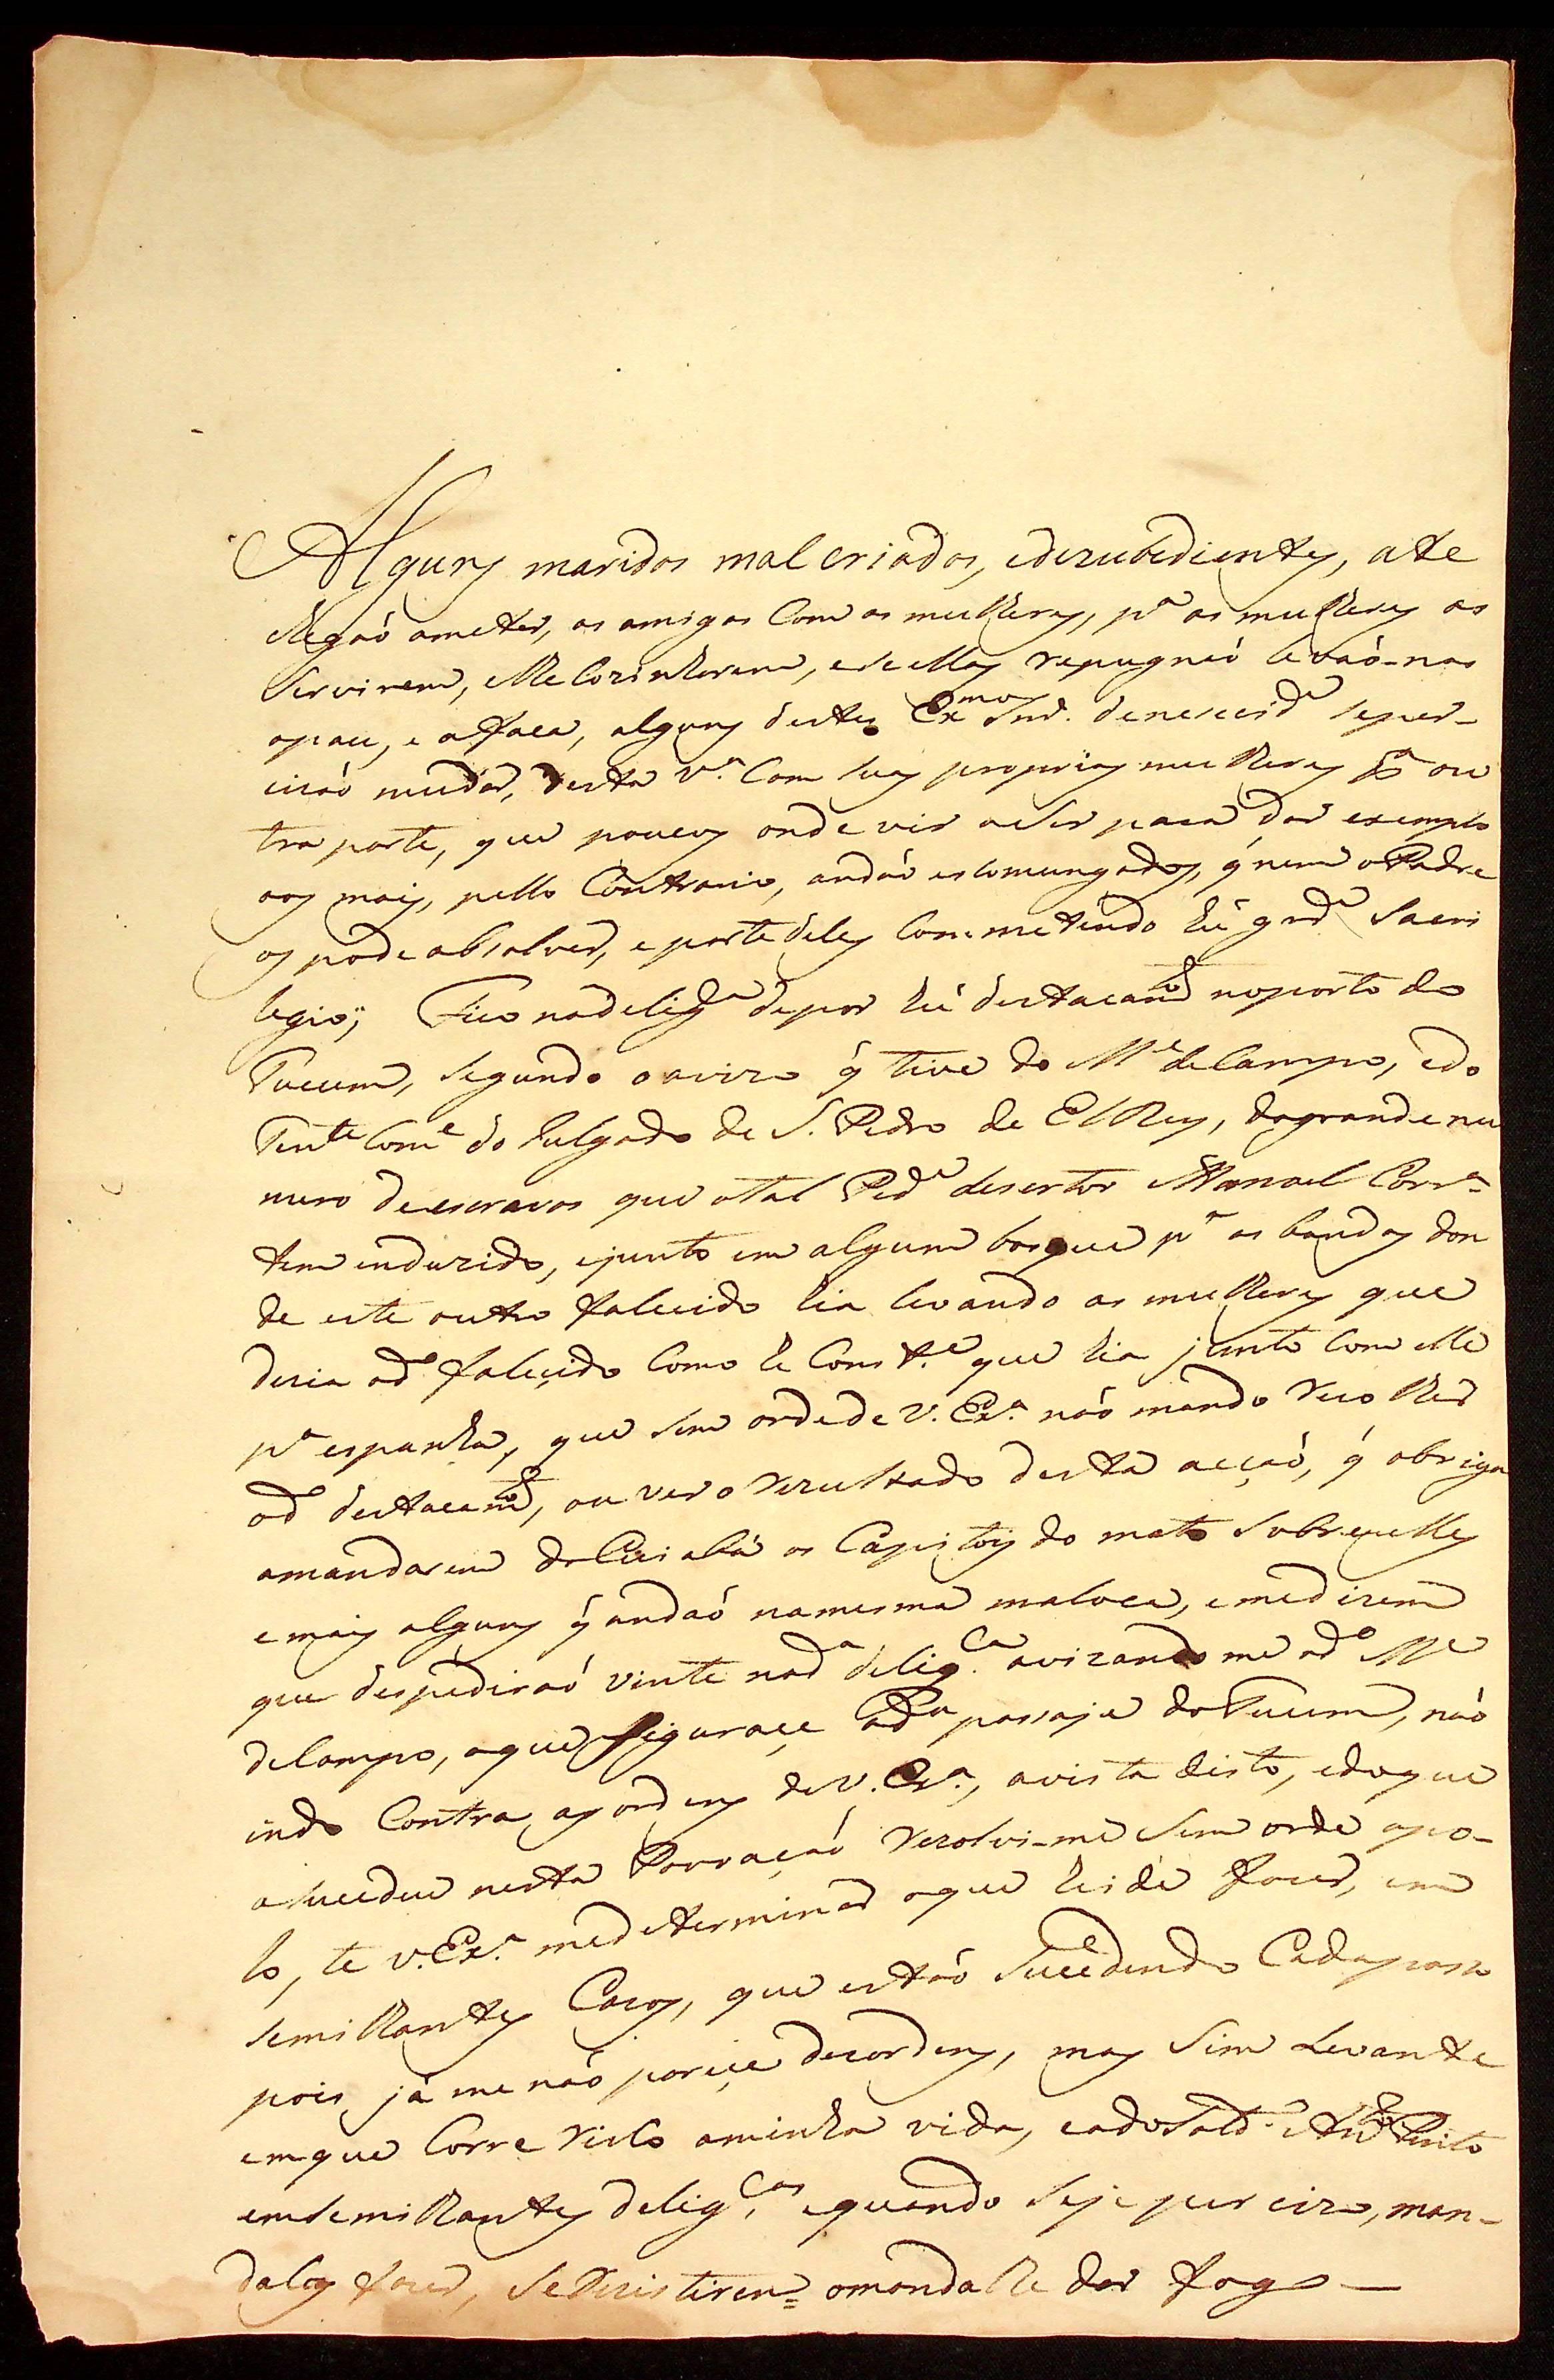 Alguns maridos mal criados, edezubedientes, ate
chegaó ameter, as amigas Com as mulheres, pª as mulheres as
Servirem, elhe Cozinharem, eseellas repugnáo levaó-nas
apau, e afaca, alguns destes Exmo Snr. denececidᵉ seper-
cizaó mudar, desta Vª Com suas proprias mulheres pª ou
tra parte, que poucos onde vir aser para dar exemplo
aos mais, pello Contrario, andáo escomungados, q̃ nem o Padre
os pode absolver, e parte deles Commetendo hũ grdᵉ Sacri
legio; Fico nadeligª depor hũ destacamᵗᵒ noporto do
Tucum, segundo oavizo q̃ tive do Mᵉ de Campo, edo
Tenᵗᵉ Comᵉ do Julgado de S. Pedro de El Rey, dagrande nu
mero deescravos que otal Pedᵉ desertor Manoel Corrª
tem enduzido, ejunto em algum bosque pª as bandas don
de este outro falecido hia levando as mulheres que
dezia odᵒ falecido Como he Constᵉ que hia junto Com elle
pª espanha, que sem ordede V. Exª náo mando recolher
odᵒ destacamᵗᵒ, ou ver o rezultado desta acçaó, q̃ obriga
amandarem do Cuiabá os Capitois do mato Sobreelles
emais alguns q̃ andaó namesma maloca, emedizem
que despediraó vinte nadª deligᶜᵃ avizandome odᵒ Mᵉ
deCampo, aque Siguraçe adª passaje do Tucum, náo
indo Contra as ordens de V. Exª, avista disto, edoque
asucedeu nesta Povoaçaó Rezolvi-me Sem orde apo-
lo, te V. Exª medeterminar oque heide fazer, em
semilhantes Cazos, que estáo Sucedendo Cadapaso
pois já me náo pareçe dezordens, mas Sim Levante
emque Corre risco aminha vida, eadoSoldᵒ Antᵒ Pinto
emsemilhantes deligᶜᵃˢ, equando Sejepercizo, man-
dalos fazer, Se Rezistirem omandalhe dar fogo —